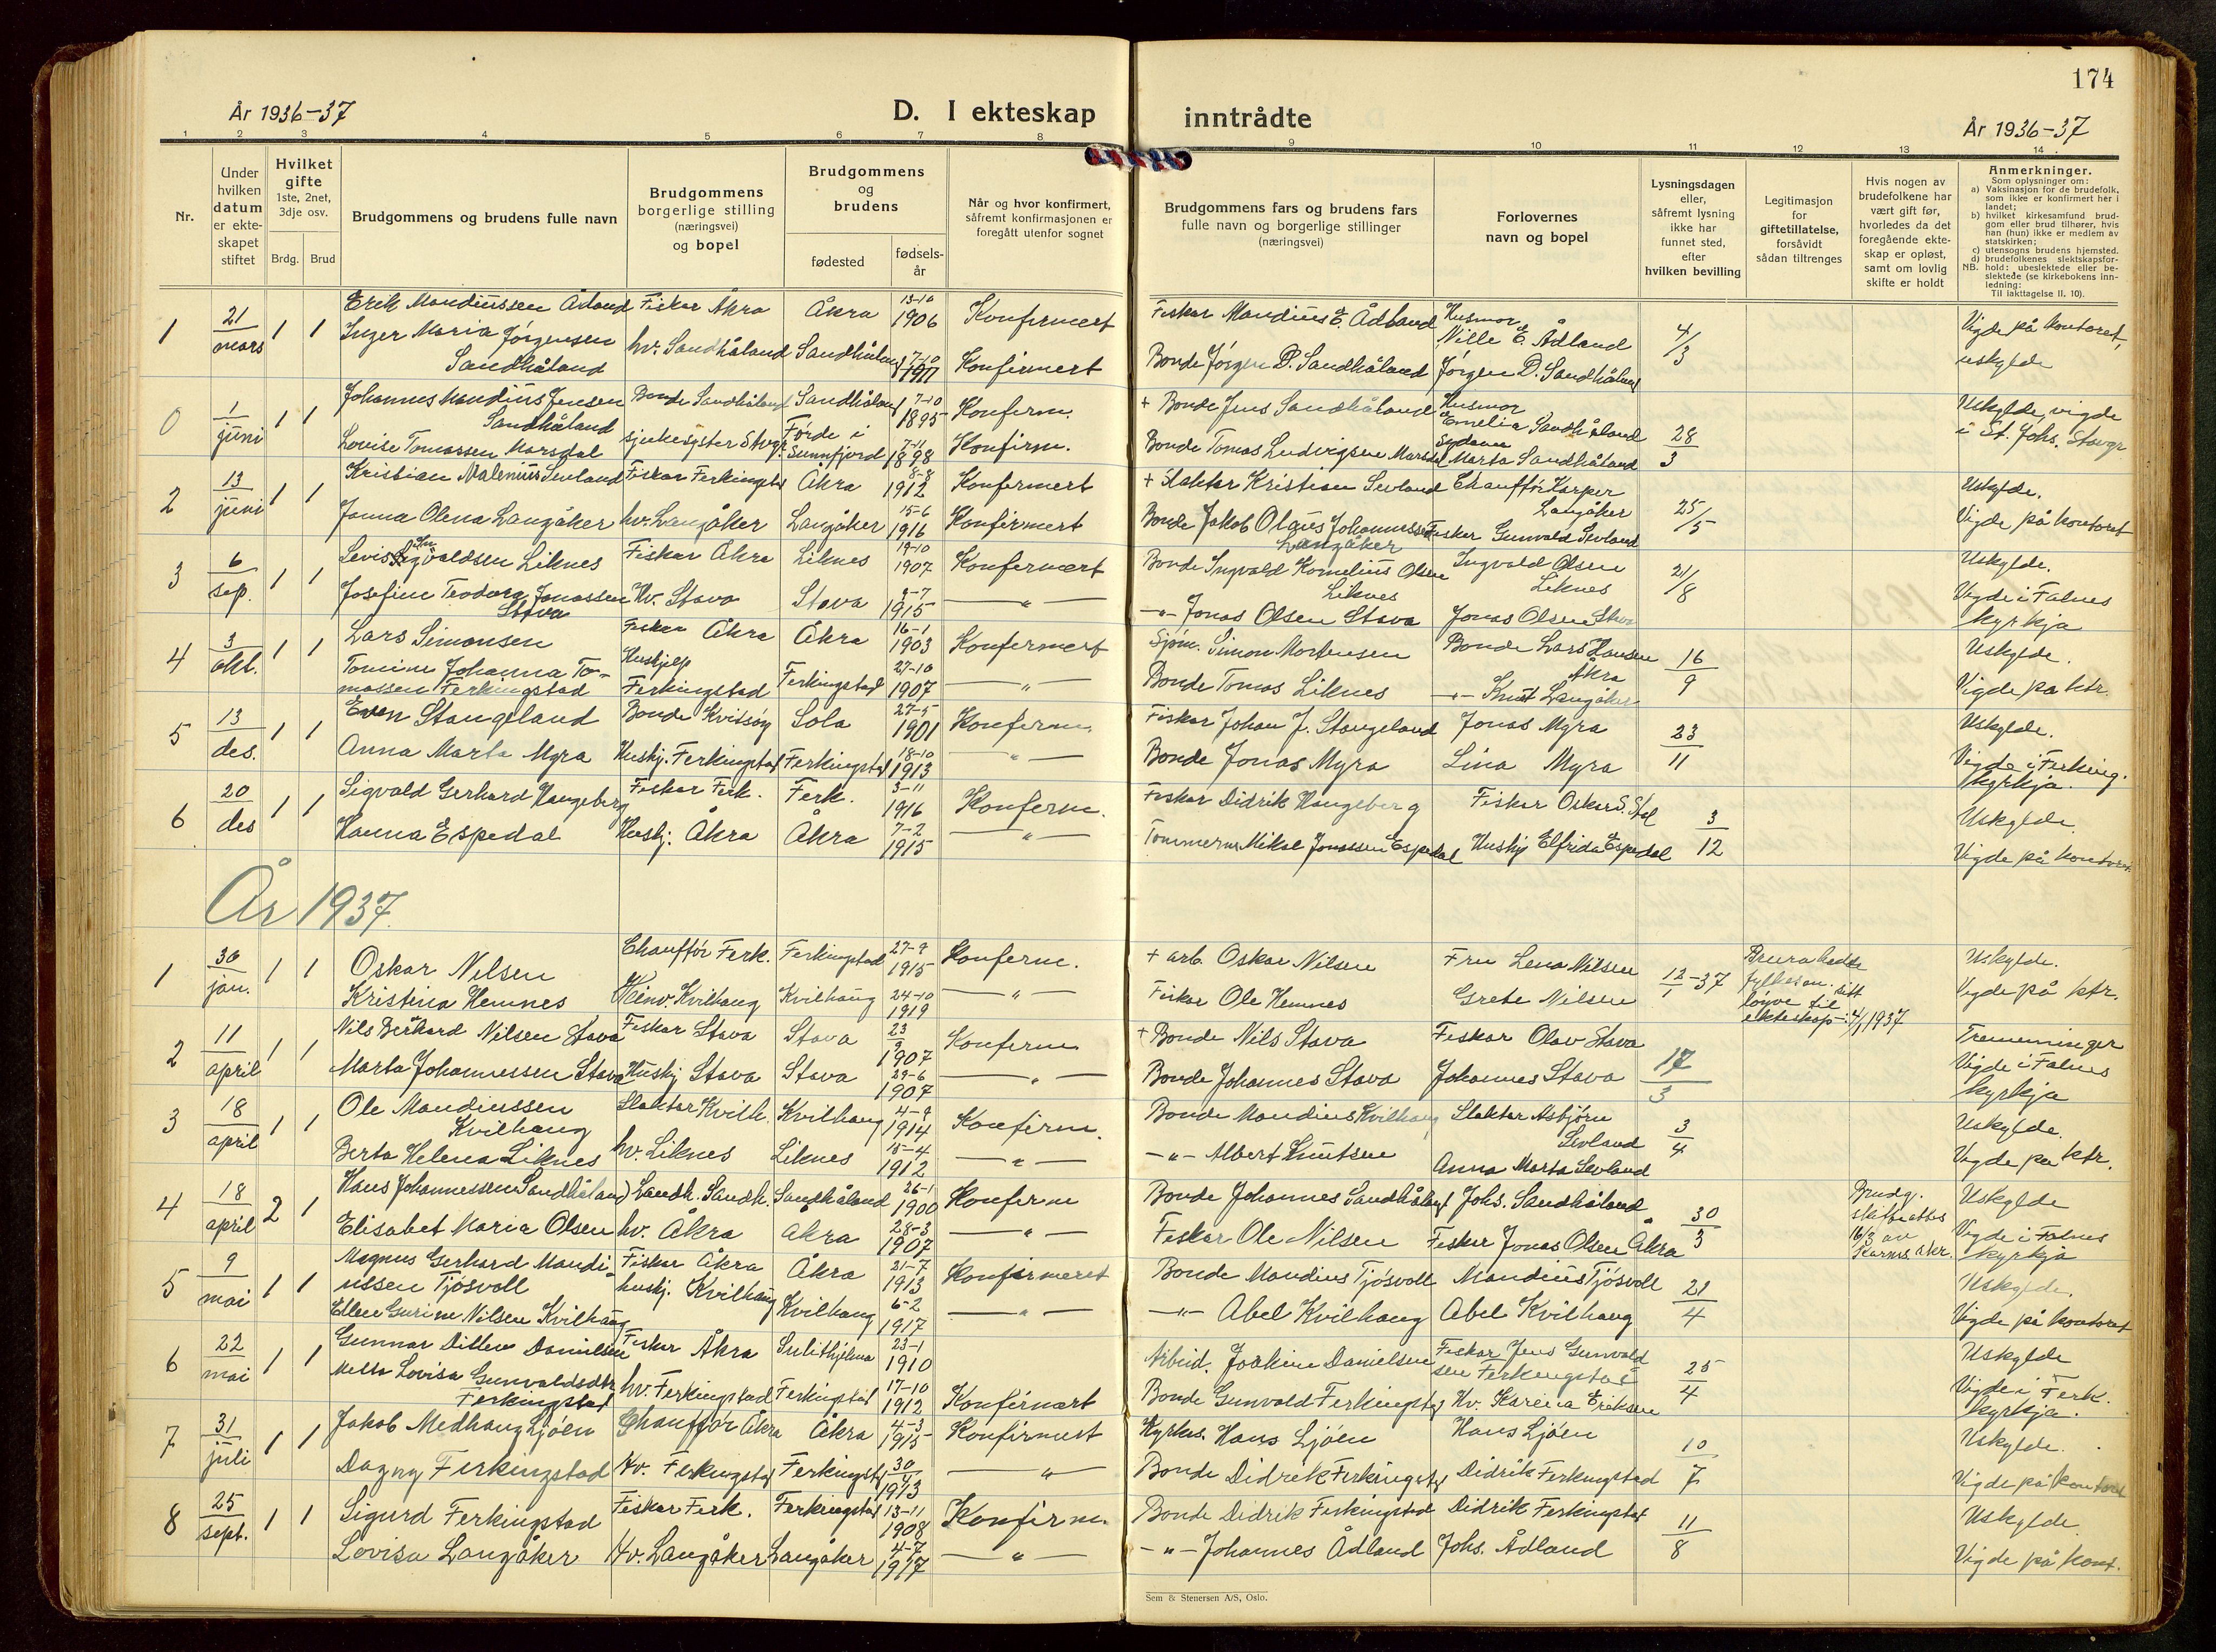 174
År 1936–37
D. I ekteskap inntrådte
År 1936–37
1 2 3 4 5 6 7 8 9 10 11 12 13 14
Nr.
Under hvilken datum er ekteskapet stiftet
Hvilket gifte 1ste, 2net, 3dje osv.
Brdg. Brud
Brudgommens og brudens fulle navn
Brudgommens borgerlige stilling (næringsvei) og bopel
Brudgommens og brudens
fødested
fødselsår
Når og hvor konfirmert, såfremt konfirmasjonen er foregått utenfor sognet
Brudgommens fars og brudens fars fulle navn og borgerlige stillinger (næringsvei)
Forlovernes navn og bopel
Lysningsdagen eller, såfremt lysning ikke har funnet sted, efter hvilken bevilling
Legitimasjon for giftetillatelse, forsåvidt sådan tiltrenges
Hvis nogen av brudefolkene har vært gift før, hvorledes da det foregående ekteskap er opløst, samt om lovlig skifte er holdt
Anmerkninger.
Som oplysninger om:
a) Vaksinasjon for de brudefolk, som ikke er konfirmert her i landet;
b) hvilket kirkesamfund brudgom eller brud tilhører, hvis han (hun) ikke er medlem av statskirken;
c) utensogns brudens hjemsted.
d) brudefolkenes slektskapsforhold: ubeslektede eller beslektede (se kirkebokens innledning:
NB. Til iakttagelse II, 10).
1 21/mars 1 1 Erik Mandiussen Ådland Fiskar Åkra Åkra 13-10 1906 Konfirmert Fiskar Mandius E. Ådland Husmor Nille E. Ådland 4/3 Vigde på kontoret,
Inger Maria Jørgensen Sandhåland hv. Sandhåland Sandhåland 7-10 1911 Konfirmert Bonde Jørgen D. Sandhåland Jørgen D. Sandhåland uskylde
0 1/juni 1 1 Johannes Mandius Jensen Sandhåland Bonde Sandhåland Sandhåland 7-10 1895 Konfirm. + Bonde Jens Sandhåland Husmor Emelia Sandhåland 28/3 Uskylde, vigde
Lovise Tomassen Marsdal sjukesyster Stvgr. Førde i Sunnfjord 7-11 1898 Konfirm. Bonde Tomas Ludvigsen Marsdal Marta Sandhåland i St. Johs. Stavgr.
2 13/juni 1 1 Kristian Malenius Sevland Fiskar Ferkingstad Åkra 8-8 1912 Konfirmert + Slaktar Kristian Sevland Chauffør Kasper Langåker 25/5 Uskylde.
Janna Olena Langåker hv. Langåker Langåker 15-6 1916 Konfirmert Bonde Jakob Olaus Johannessen Langåker Fisker Gunvald Sevland Vigde på kontoret
3 6/sep. 1 1 Sevis Ingvaldsen Liknes Fiskar Åkra Liknes 19-10 1907 Konfirmert Bonde Ingvald Kornelius Olsen Liknes Ingvald Olsen Liknes 21/8 Uskylde.
Josefine Teodora Jonassen Stava Hv. Stava Stava 2-7 1915 — " — —"— Jonas Olsen Stava Jonas Olsen Stava Vigde i Falnes kyrkja
4 3/okt. 1 1 Lars Simonsen Fiskar Åkra Åkra 16-1 1903 Konfirmert Sjøm. Simon Mortensen Bonde Lars Hansen Åkra 16/9 Uskylde.
Tomine Johanna Tomassen Ferkingstad Hushjelp Ferkingstad Ferkingstad 27-10 1907 — " — Bonde Tomas Liknes —"— Knut Langåker Vigde på ktr.
5 13/des. 1 1 Even Stangeland Bonde Kvitsøy Sola 27-5 1901 Konfirm. Fiskar Johan J. Stangeland Jonas Myra 23/11 Uskylde.
Anna Marta Myra Hushj. Ferkingstad Ferkingstad 18-10 1913 — " — Bonde Jonas Myra Lina Myra Vigde i Ferking. kyrkja.
6 20/des 1 1 Sigvald Gerhard Haugeberg Fiskar Ferk. Ferk. 3-11 1916 Konfirm. Fiskar Didrik Haugeberg Fiskar Oskar S. Stol 3/12 Uskylde.
Hanna Espedal Hushj. Åkra Åkra 7-2 1915 — " — Tømmerm Mikal Jonassen Espedal Hushj Elfrida Espedal Vigde på kontoret.
År 1937.
1 30/jan. 1 1 Oskar Nilsen Chauffør Ferk. Ferkingstad 27-9 1915 Konfirm. + arb. Oskar Nilsen Fru Lena Nilsen 12/1-37 Brura hadde fylkesm. sitt løyve til ekteskap: 4/1 1937 Uskylde.
Kristina Hemnes Heimv. Kvilhaug Kvilhaug 24-10 1919 — " — Fiskar Ole Hemnes Grete Nilsen Vigde på ktr.
2 11/april 1 1 Nils Berhard Nilsen Stava Fiskar Stava Stava 23/9 1907 Konfirm + Bonde Nils Stava Fiskar Olav Stava 17/3 Tremenninger
Marta Johannessen Stava Hushj Stava Stava 29-6 1907 — " — Bonde Johannes Stava Johannes Stava Vigde i Falnes kyrkja
3 18/april 1 1 Ole Mandiussen Kvilhaug Slaktar Kvilh. Kvilhaug 4-9 1914 Konfirm. Bonde Mandius Kvilhaug Slaktar Asbjørn Sevland 3/4 Uskylde.
Berta Helena Liknes hv. Liknes Liknes 15-4 1912 — " — —"— Albert Knutsen Anna Marta Sevland Vigde på ktr.
4 18/april 2 1 Hans Johannessen Sandhåland Landh. Sandh. Sandhåland 26-1 1900 Konfirm Bonde Johannes Sandhåland Johs. Sandhåland 30/3 Brudg. skifteattes 16/3 av Karms. skr. Uskylde
Elisabet Maria Olsen hv. Åkra Åkra 28-3 1907 — " — Fiskar Ole Nilsen Fisker Jonas Olsen Åkra Vigde i Falnes kyrkja
5 9/mai 1 1 Magnus Gerhard Mandiussen Tjøsvoll Fiskar Åkra Åkra 21-7 1913 Konfirmeret Bonde Mandius Tjøsvoll Mandius Tjøsvoll 21/4 Uskylde.
Ellen Gurine Nilsen Kvilhaug hushj. Kvilhaug Kvilhaug 6-2 1917 — " — —"— Abel Kvilhaug Abel Kvilhaug Vigde på kontoret
6 22/mai 1 1 Gunnar Ditlev Danielsen Fiskar Åkra Sulithjelma 23-1 1910 Arbeid. Joakim Danielsen Fiskar Jens Gunvaldsen Ferkingstad 25/4 Uskylde
Lovisa Gunvaldsdtr Ferkingstad hv. Ferkingstad Ferkingstad 17-10 1912 Konfirmert Bonde Gunvald Ferkingstad Hv. Karena Eriksen Vigde i Ferk. kyrkja.
7 31/juli 1 1 Jakob Medhaug Ljøen Chauffør Åkra Åkra 4-3 1915 Konfirmert Kyrkes. Hans Ljøen Hans Ljøen 10/7 Uskylde.
Dagny Ferkingstad Hv. Ferkingstad Ferkingstad 30 1913 — " — Bonde Didrik Ferkingstad Didrik Ferkingstad Vigde på kontoret
8 25/sept. 1 1 Sigurd Ferkingstad Fiskar Ferk. Ferkingstad 13-11 1908 Konfirm. Bonde Didrik Ferkingstad Didrik Ferkingstad 11/8 Uskylde.
Lovisa Langåker Hv. Langåker Langåker 4-7 1917 — " — —"— Johannes Ådland Johs. Ådland Vigde på kont.
Sem & Stenersen A/S, Oslo.